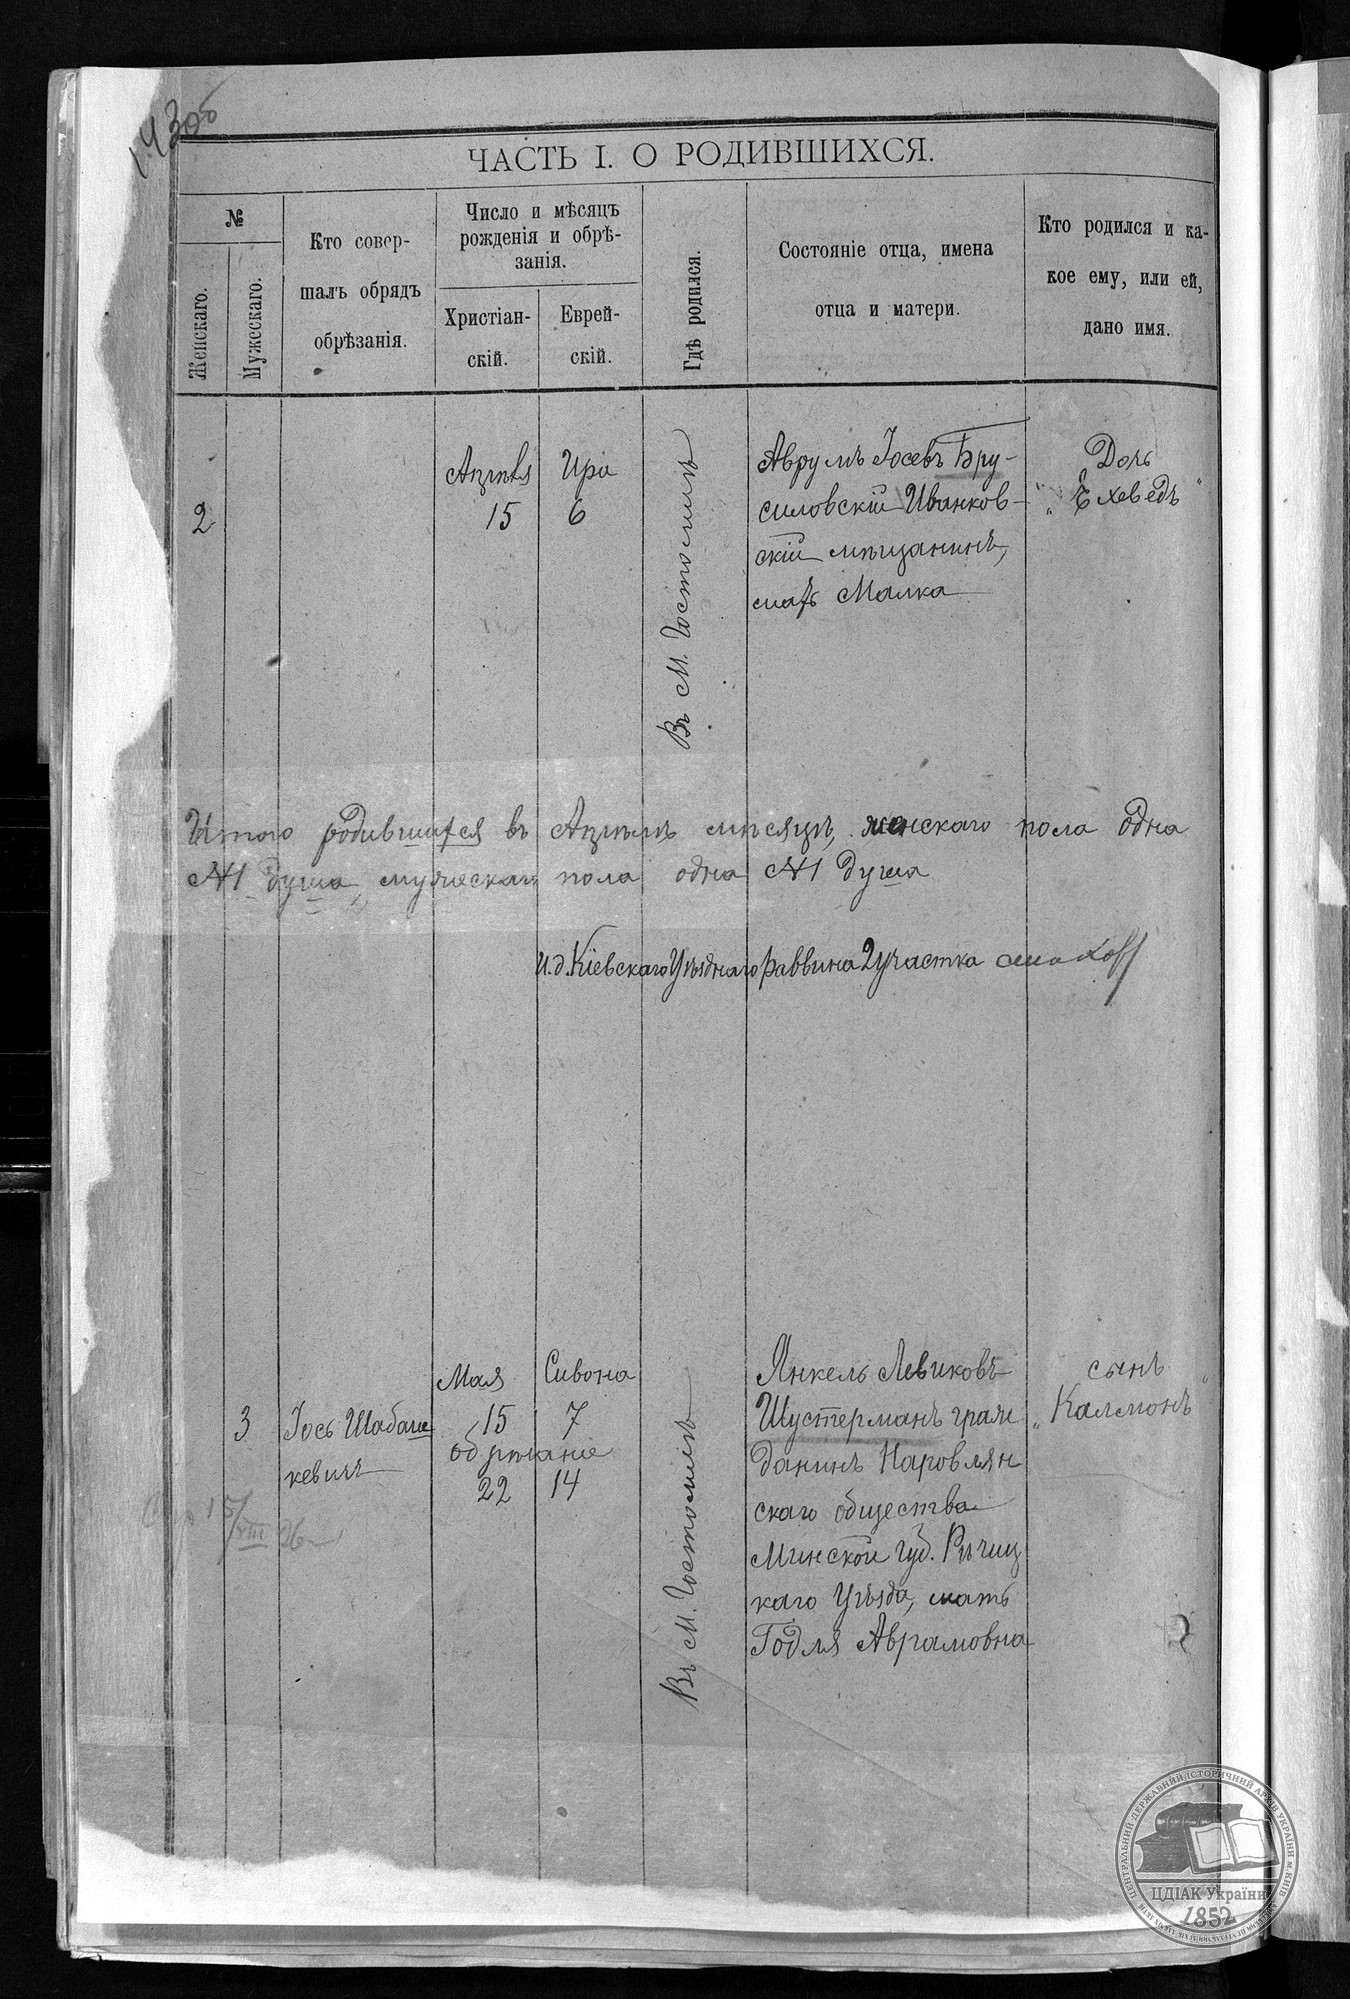 143об
ЧАСТЬ I. О РОДИВШИХСЯ.
№
Женскаго.
Мужескаго.
Кто совер-
шалъ обрядъ
обрѣзанія.
Число и мѣсяцъ
рожденія и обрѣ-
занія.
Христіан-
скій.
Еврей-
скій.
Гдѣ родился.
Состояніе отца, имена
отца и матери.
Кто родился и ка-
кое ему, или ей,
дано имя.
2
Апрѣля
15
Ира
6
Въ М. Гостомлѣ
Аврумъ Іосевъ Бру-
силовскій Иванков-
скій мѣщанинъ,
мать Малка
Дочь
„Ехеведъ"
Итого родившихся въ Апрѣлѣ мѣсяцѣ, женскаго пола одна
№1 душа, мужескаго пола одна №1 душа
И.д. Кіевскаго Уѣзднаго раввина 2 участка
3
Іось Шабаш
кевичъ
Мая
15
Сивона
7
обрѣзаніе
22 14
Въ М. Гостомлѣ
Янкель Левиковъ
Шустерманъ граж
данинъ Наровлян
скаго общества
Минской губ. Рѣчиц
каго Уѣзда, мать
Годля Аврамовна
сынъ
„Калмонъ"
15/VIII 26
2
ЦЕНТРАЛЬНИЙ ДЕРЖАВНИЙ ІСТОРИЧНИЙ АРХІВ УКРАЇНИ М. КИЇВ
ЦДІАК України
1852